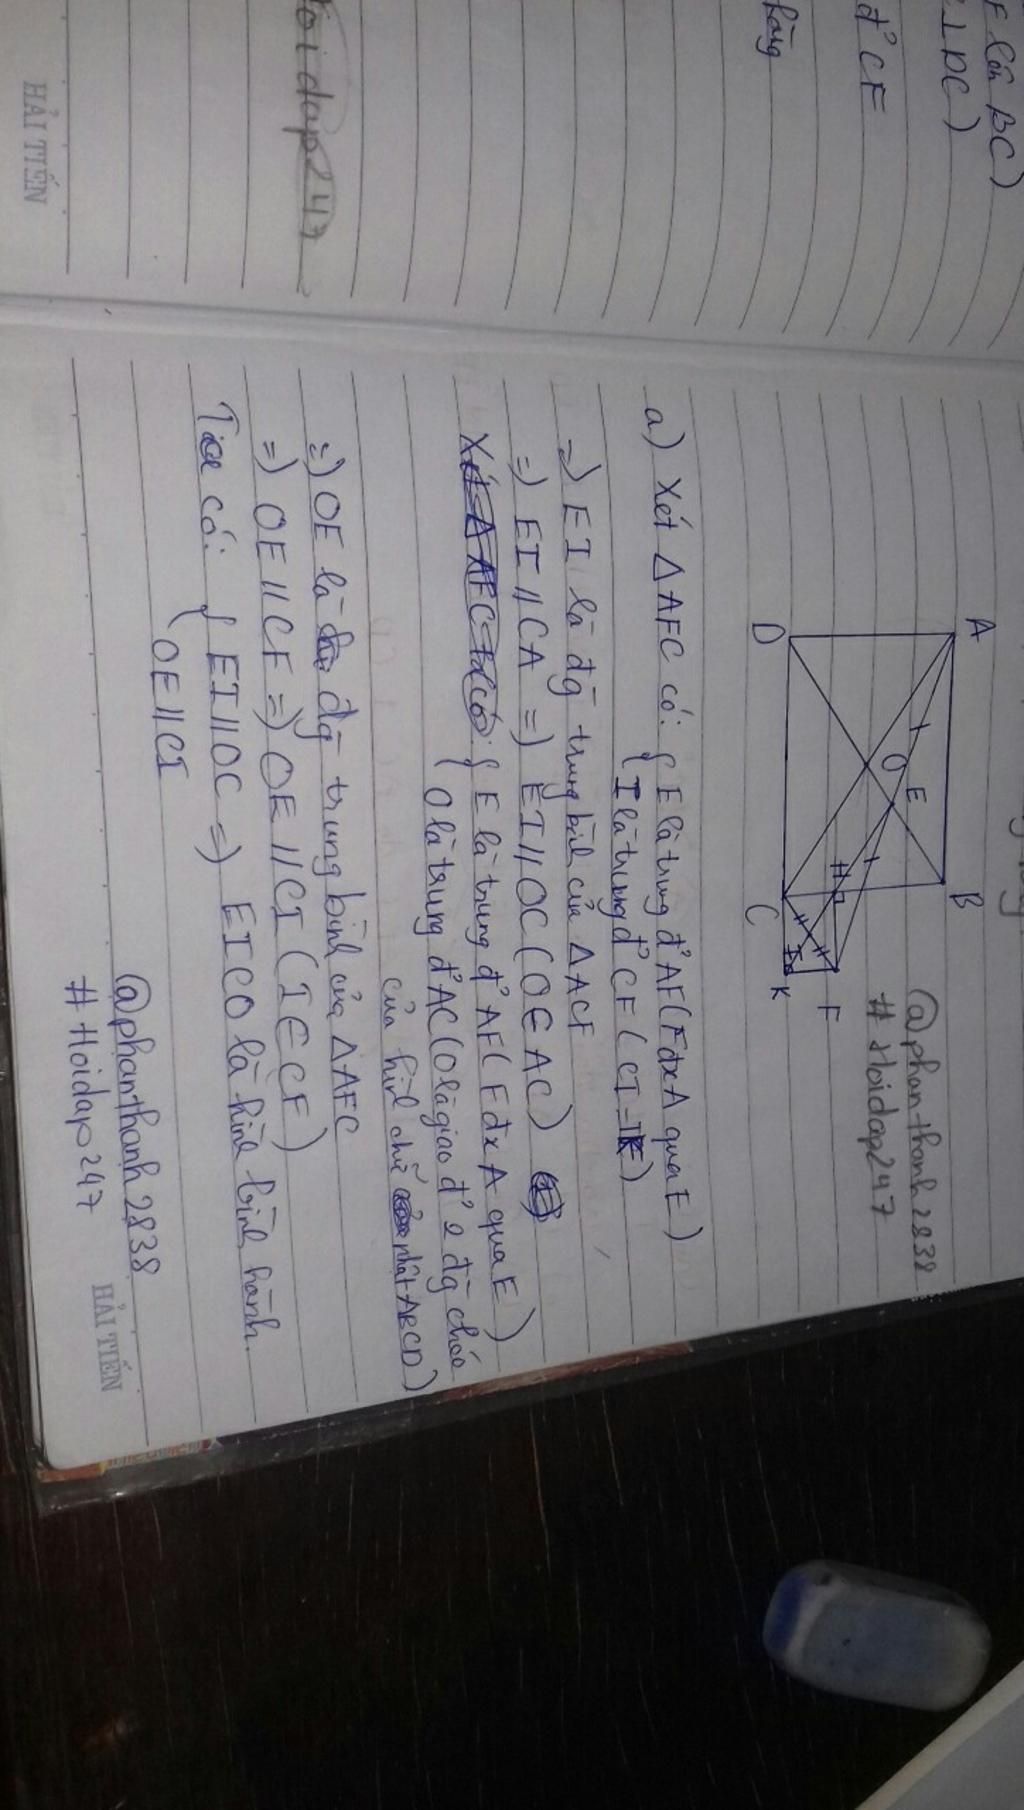 F lên BC)
⊥DC)
đ' CF
hàng
oidap247
HẢI TIẾN
A
B
O
E
H
D
C
I
K
F
@phanthanh2838
#Hoidap247
a) Xét △AFC có: { E là trung đ' AF (F đx A qua E)
I là trung đ' CF (CI=IF)
=) EI là đg trung bình của △ACF
=) EI // CA =) EI // OC (O∈AC)
{ E là trung đ' AF (F đx A qua E)
O là trung đ' AC (O là giao đ' 2 đg chéo
của hình chữ nhật ABCD)
=) OE là đg trung bình của △AFC
=) OE // CF =) OE // CI (I∈CF)
Ta có: { EI // OC =) EICO là hình bình hành.
OE // CI
@phanthanh2838
#Hoidap247
HẢI TIẾN